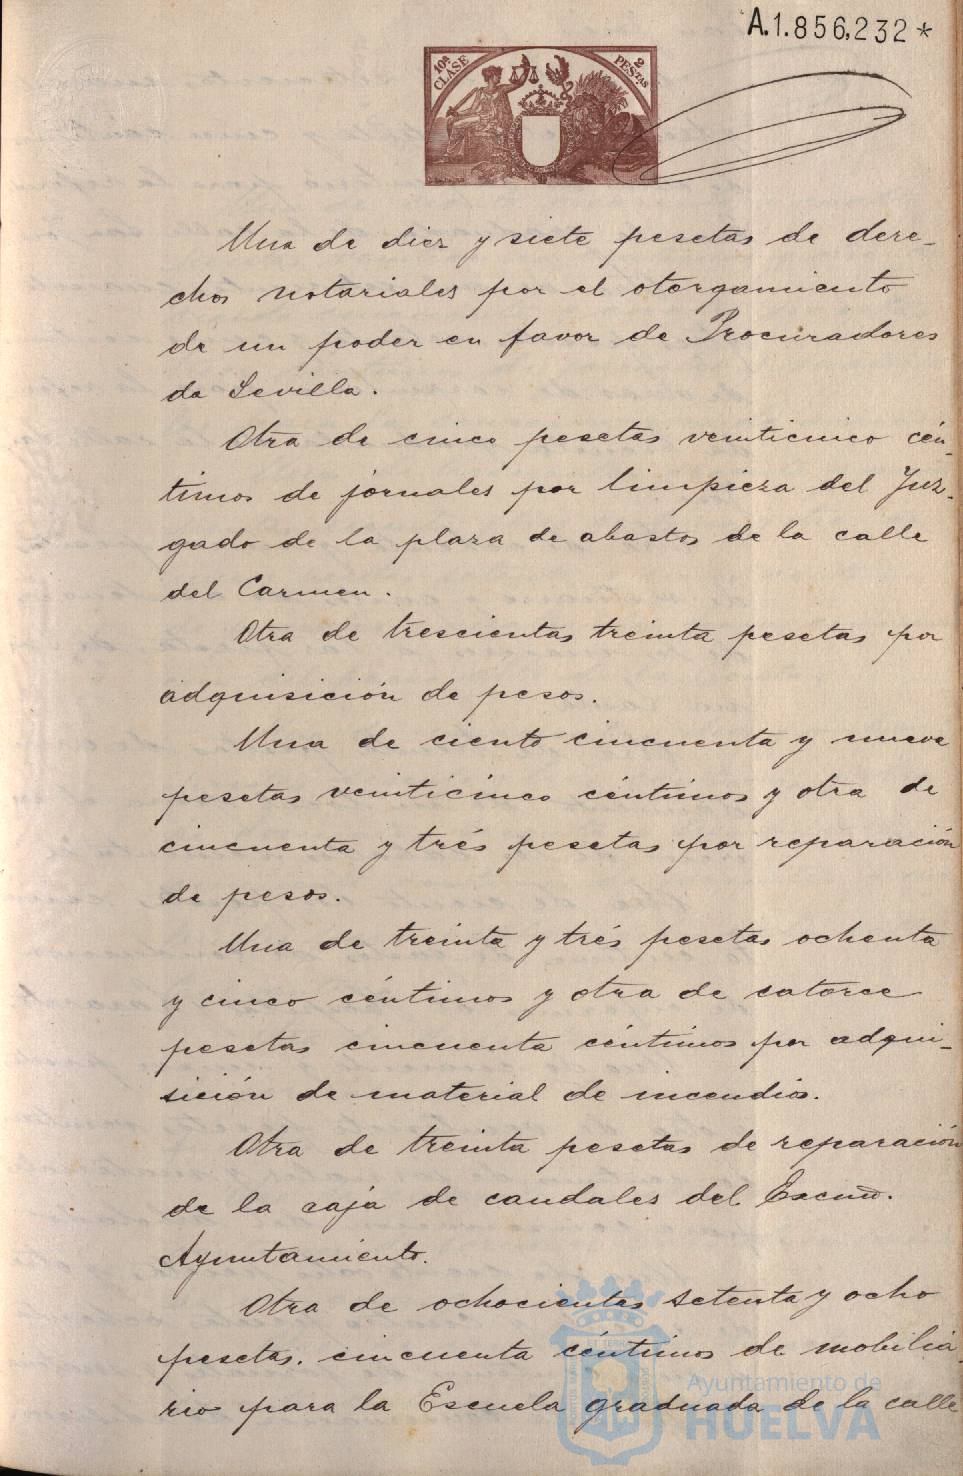 A.1.856,232*
10ª CLASE
2 PESTAS
Una de diez y siete pesetas de dere-
chos notariales por el otorgamiento
de un poder en favor de Procuradores
de Sevilla.
Otra de cinco pesetas veinticinco cén-
timos de jornales por limpieza del Juz-
gado de la plaza de abastos de la calle
del Carmen.
Otra de trescientas treinta pesetas por
adquisición de pesos.
Una de ciento cincuenta y nueve
pesetas veinticinco céntimos y otra de
cincuenta y trés pesetas por reparación
de pesos.
Una de treinta y trés pesetas ochenta
y cinco céntimos y otra de catorce
pesetas cincuenta céntimos por adqui-
sición de material de incendios.
Otra de treinta pesetas de reparación
de la caja de caudales del Excmo.
Ayuntamiento.
Otra de ochocientas setenta y ocho
pesetas. cincuenta céntimos de mobilia-
rio para la Escuela graduada de la calle
Ayuntamiento de
HUELVA